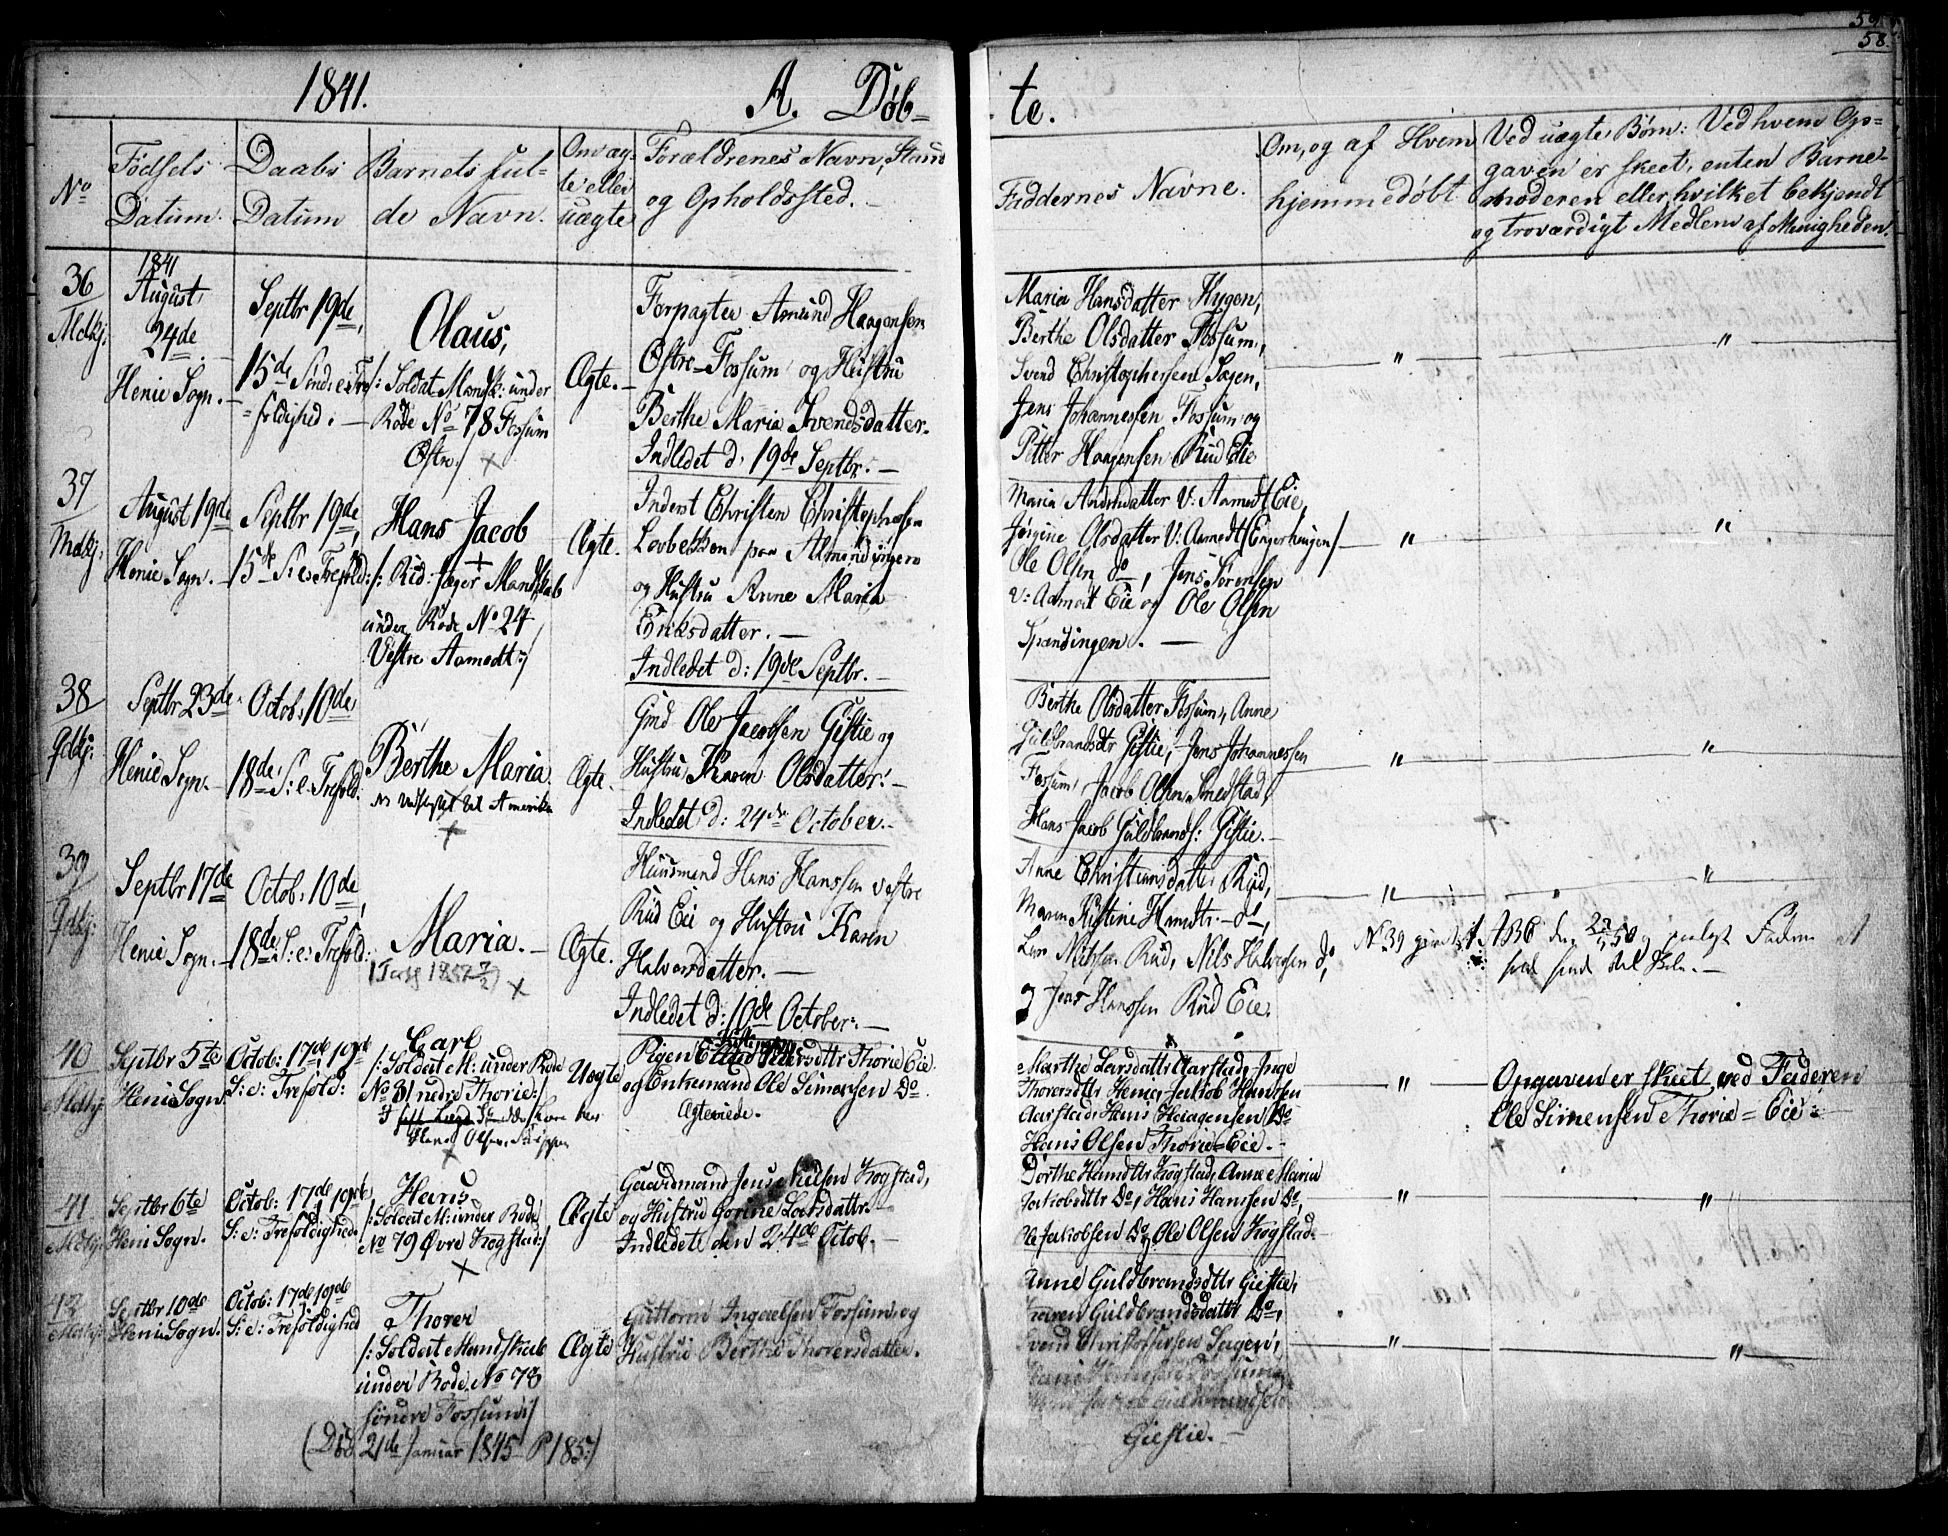 58
1841.
A. Døb-
te.
No
Fødsels Datum.
Daabs Datum
Barnets ful-
de Navn.
Om æg-
te eller
uægte
Forældrenes Navn, Stand
og Opholdssted.
Faddernes Navne.
Om, og af Hvem
hjemmedøbt
Ved uægte Børn: Ved hvem Op-
gaven er skeet, enten Barne-
moderen eller hvilket bekjendt
og troværdigt Medlem af Menigheden.
36
Mdkj:
1841
August
24de
Henie Sogn.
Septbr 19de,
15de Sønd: e: Tre-
foldighed.
Olaus,
/: Soldat Mandsk: under
Rode No 78 Fossum
Østre/
Ægte.
Forpagter Amund Haagensen
Østre Fossum og Hustru
Berthe Maria Svendsdatter.
Indledet d: 19de Septbr.
Maria Hansdatter Hygen,
Berthe Olsdatter Fossum,
Svend Christophersen Sagen,
Jens Johannessen Fossum og
Petter Haagensen Rud Eie
37
Mdkj:
August 19de
Henie Sogn.
Septbr 19de,
15de S: e: Trefold:
Hans Jacob
under Rode No 24
Vestre Aamodt:/
Ægte.
Inderst Christen Christophersen
og Hustru Anne Maria
Eriksdatter.
Indledet d: 19de Septbr.
Maria Andersdatter V: Aamodt Eie,
Jørgine Olsdatter V: Aamodt
Ole Olsen do, Jens Sørensen
V: Aamodt Eie og Ole Olsen
Spændingen.
38
Qdkj:
Septbr 23de
Henie Sogn.
Octob: 10de
18de S: e: Trefold:
Berthe Maria
Udflyttet til Amerika
Ægte.
Gmd Ole Jacobsen Gistie og
Hustru Karen Olsdatter.
Indledet d: 24de October.
Berthe Olsdatter Fossum, Anne
Guldbrandsdtr Gistie, Jens Johannessen
Fossum, Jacob Olsen Smedstad,
Hans Jacob Guldbrands: Gistie.
39
Qdkj:
Septbr 17de
Henie Sogn.
Octob: 10de,
18de S: e: Trefold:
Maria.
Ægte.
Huusmand Hans Hanssen vestre
Rud Eie og Hustru Karen
Halvorsdatter.
Indledet d: 10de October.
Anne Christiansdatter Rud,
Maren Kistine Hansdtr. do,
Lars Nilsen Rud, Nils Halvorsen do,
og Jens Hanssen Rud Eie.
40
Mdkj:
Septbr 5te
Henie Sogn
Octob: 17de 19de
S: e: Trefold:
Carl
/: Soldat M: under Rode
No 31 nedre Thorie:/
Uægte
Pigen Pedersdttr Thorie Eie
og Enkemand Ole Simensen Do
Marthe Larsdattr Aarstad, Inge
Thorersdttr Henie, Jakob Hansen
Aarstad, Hans Haagensen Do
Hans Olsen Thorie=Eie.
Opgaven er skeet ved Faderen
Ole Simensen Thorie=Eie
41
Mdkj:
Septbr 6te
Heni Sogn.
Octob: 17de 19de
S: e: Trefoldighed
Hans
/: Soldat M: under Rode
No 79 Øvre Kogstad:/
Ægte
Gaardmand Jens Nielsen Kogstad,
og Hustrue Gorine Larsdattr.
Indledete den 24de Octob.
Dorthe Hansdttr Kogstad, Anne Maria
Jakobsdttr Do, Hans Hansen Do,
Ole Jakobsen Do, Ole Olsen Kogstad.
42
Mdkj:
Septbr 10de
Henie Sogn.
Octob: 17de 19de
S: e: Trefoldighed
Thorer
/: Soldat Mandskab
under Rode No 78
søndre Fossum:/
(Død 21de Januar 1845 P. 185:)
Ægte
Guttorm Ingvelsen Fossum og
Hustrue Berthe Thorersdatter.
Anne Guldbrandsdttr Giestie,
Karen Guldbrandsdattr Do,
Svend Christofersen Sagen,
Giestie.